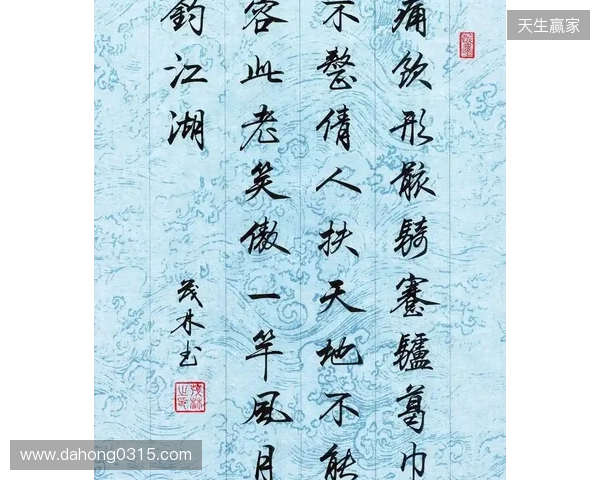 天生赢家
痛飲形骸騎蹇驢葛巾
不整倩人扶天地不能
容此老笑傲一竿風月
釣江湖
茂林书
www.dahong0315.com